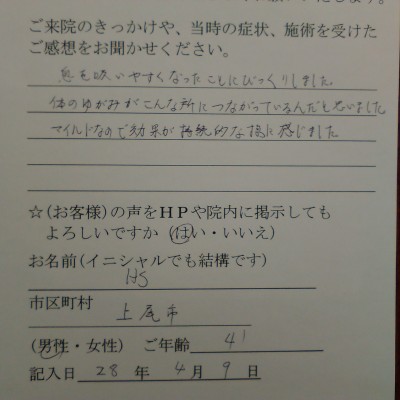 ご来院のきっかけや、当時の症状、施術を受けた
ご感想をお聞かせください。
息を吸いやすくなったことにびっくりしました。
体のゆがみがこんな所につながっているんだと思いました
マイルドなので効果が持続的な様に感じました
☆(お客様)の声をHPや院内に掲示しても
よろしいですか (はい・いいえ)
お名前(イニシャルでも結構です)
HS
市区町村 上尾市
(男性・女性) ご年齢 41
記入日 28 年 4 月 9 日